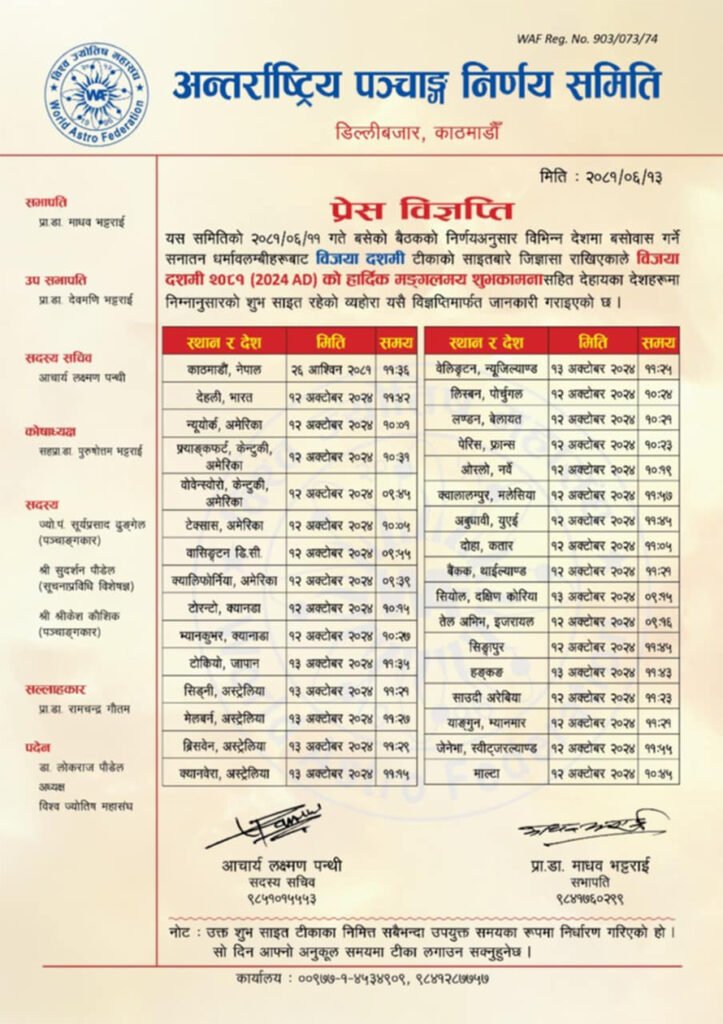 WAF Reg. No. 903/073/74
विश्व ज्योतिष महासंघ
WAF
World Astro Federation
अन्तर्राष्ट्रिय पञ्चाङ्ग निर्णय समिति
डिल्लीबजार, काठमाडौँ
मिति : २०८१/०६/१३
सभापति
प्रा.डा. माधव भट्टराई
उप सभापति
प्रा.डा. देवमणि भट्टराई
सदस्य सचिव
आचार्य लक्ष्मण पन्थी
कोषाध्यक्ष
सहप्रा.डा. पुरुषोत्तम भट्टराई
सदस्य
ज्यो.पं. सूर्यप्रसाद ढुङ्गेल
(पञ्चाङ्गकार)
श्री सुदर्शन पौडेल
(सूचनाप्रविधि विशेषज्ञ)
श्री श्रीकेश कौशिक
(पञ्चाङ्गकार)
सल्लाहकार
प्रा.डा. रामचन्द्र गौतम
पदेन
डा. लोकराज पौडेल
अध्यक्ष
विश्व ज्योतिष महासंघ
प्रेस विज्ञप्ति
यस समितिको २०८१/०६/११ गते बसेको बैठकको निर्णयअनुसार विभिन्न देशमा बसोवास गर्ने
सनातन धर्मावलम्बीहरूबाट विजया दशमी टीकाको साइतबारे जिज्ञासा राखिएकाले विजया
दशमी २०८१ (2024 AD) को हार्दिक मङ्गलमय शुभकामनासहित देहायका देशहरूमा
निम्नानुसारको शुभ साइत रहेको व्यहोरा यसै विज्ञप्तिमार्फत जानकारी गराइएको छ ।
स्थान र देश मिति समय
काठमाडौं, नेपाल २६ आश्विन २०८१ ११:३६
देहली, भारत १२ अक्टोबर २०२४ ११:४२
न्यूयोर्क, अमेरिका १२ अक्टोबर २०२४ १०:०१
फ्र्याङ्कफर्ट, केन्टुकी,
अमेरिका १२ अक्टोबर २०२४ १०:३१
वोवेन्स्वोरो, केन्टुकी,
अमेरिका १२ अक्टोबर २०२४ ०९:४५
टेक्सास, अमेरिका १२ अक्टोबर २०२४ १०:०५
वासिङ्टन डि.सी १२ अक्टोबर २०२४ ०९:५५
क्यालिफोर्निया, अमेरिका १२ अक्टोबर २०२४ ०९:३९
टोरन्टो, क्यानडा १२ अक्टोबर २०२४ १०:१५
भ्यानकुभर, क्यानाडा १२ अक्टोबर २०२४ १०:२७
टोकियो, जापान १३ अक्टोबर २०२४ ११:३५
सिड्नी, अस्ट्रेलिया १३ अक्टोबर २०२४ ११:२१
मेलबर्न, अस्ट्रेलिया १३ अक्टोबर २०२४ ११:२७
ब्रिसवेन, अस्ट्रेलिया १३ अक्टोबर २०२४ ११:२९
क्यानवेरा, अस्ट्रेलिया १३ अक्टोबर २०२४ ११:१५
स्थान र देश मिति समय
वेलिङ्टन, न्यूजिल्याण्ड १३ अक्टोबर २०२४ ११:२५
लिस्बन, पोर्चुगल १२ अक्टोबर २०२४ १०:२४
लण्डन, बेलायत १२ अक्टोबर २०२४ १०:२१
पेरिस, फ्रान्स १२ अक्टोबर २०२४ १०:२३
ओस्लो, नर्वे १२ अक्टोबर २०२४ १०:१९
क्वालालम्पुर, मलेसिया १२ अक्टोबर २०२४ ११:५७
अबुधावी, युएई १२ अक्टोबर २०२४ ११:४५
दोहा, कतार १२ अक्टोबर २०२४ ११:०५
बैंकक, थाईल्याण्ड १२ अक्टोबर २०२४ ११:२१
सियोल, दक्षिण कोरिया १३ अक्टोबर २०२४ ०९:१५
तेल अभिभ, इजरायल १२ अक्टोबर २०२४ ०९:१६
सिङ्गापुर १२ अक्टोबर २०२४ ११:४५
हङकङ १३ अक्टोबर २०२४ ११:४३
साउदी अरेबिया १२ अक्टोबर २०२४ ११:२३
याङ्गुन, म्यानमार १२ अक्टोबर २०२४ ११:२१
जेनेभा, स्वीट्जरल्याण्ड १२ अक्टोबर २०२४ ११:५५
माल्टा १२ अक्टोबर २०२४ १०:४५
आचार्य लक्ष्मण पन्थी
सदस्य सचिव
९८५१०१५५५३
प्रा.डा. माधव भट्टराई
सभापति
९८४१७६०२९९
नोट : उक्त शुभ साइत टीकाका निमित्त सबैभन्दा उपयुक्त समयका रूपमा निर्धारण गरिएको हो ।
सो दिन आफ्नो अनुकूल समयमा टीका लगाउन सक्नुहुनेछ ।
कार्यालय : ००९७७-१-४५३४९०९, ९८४१२८७७५७